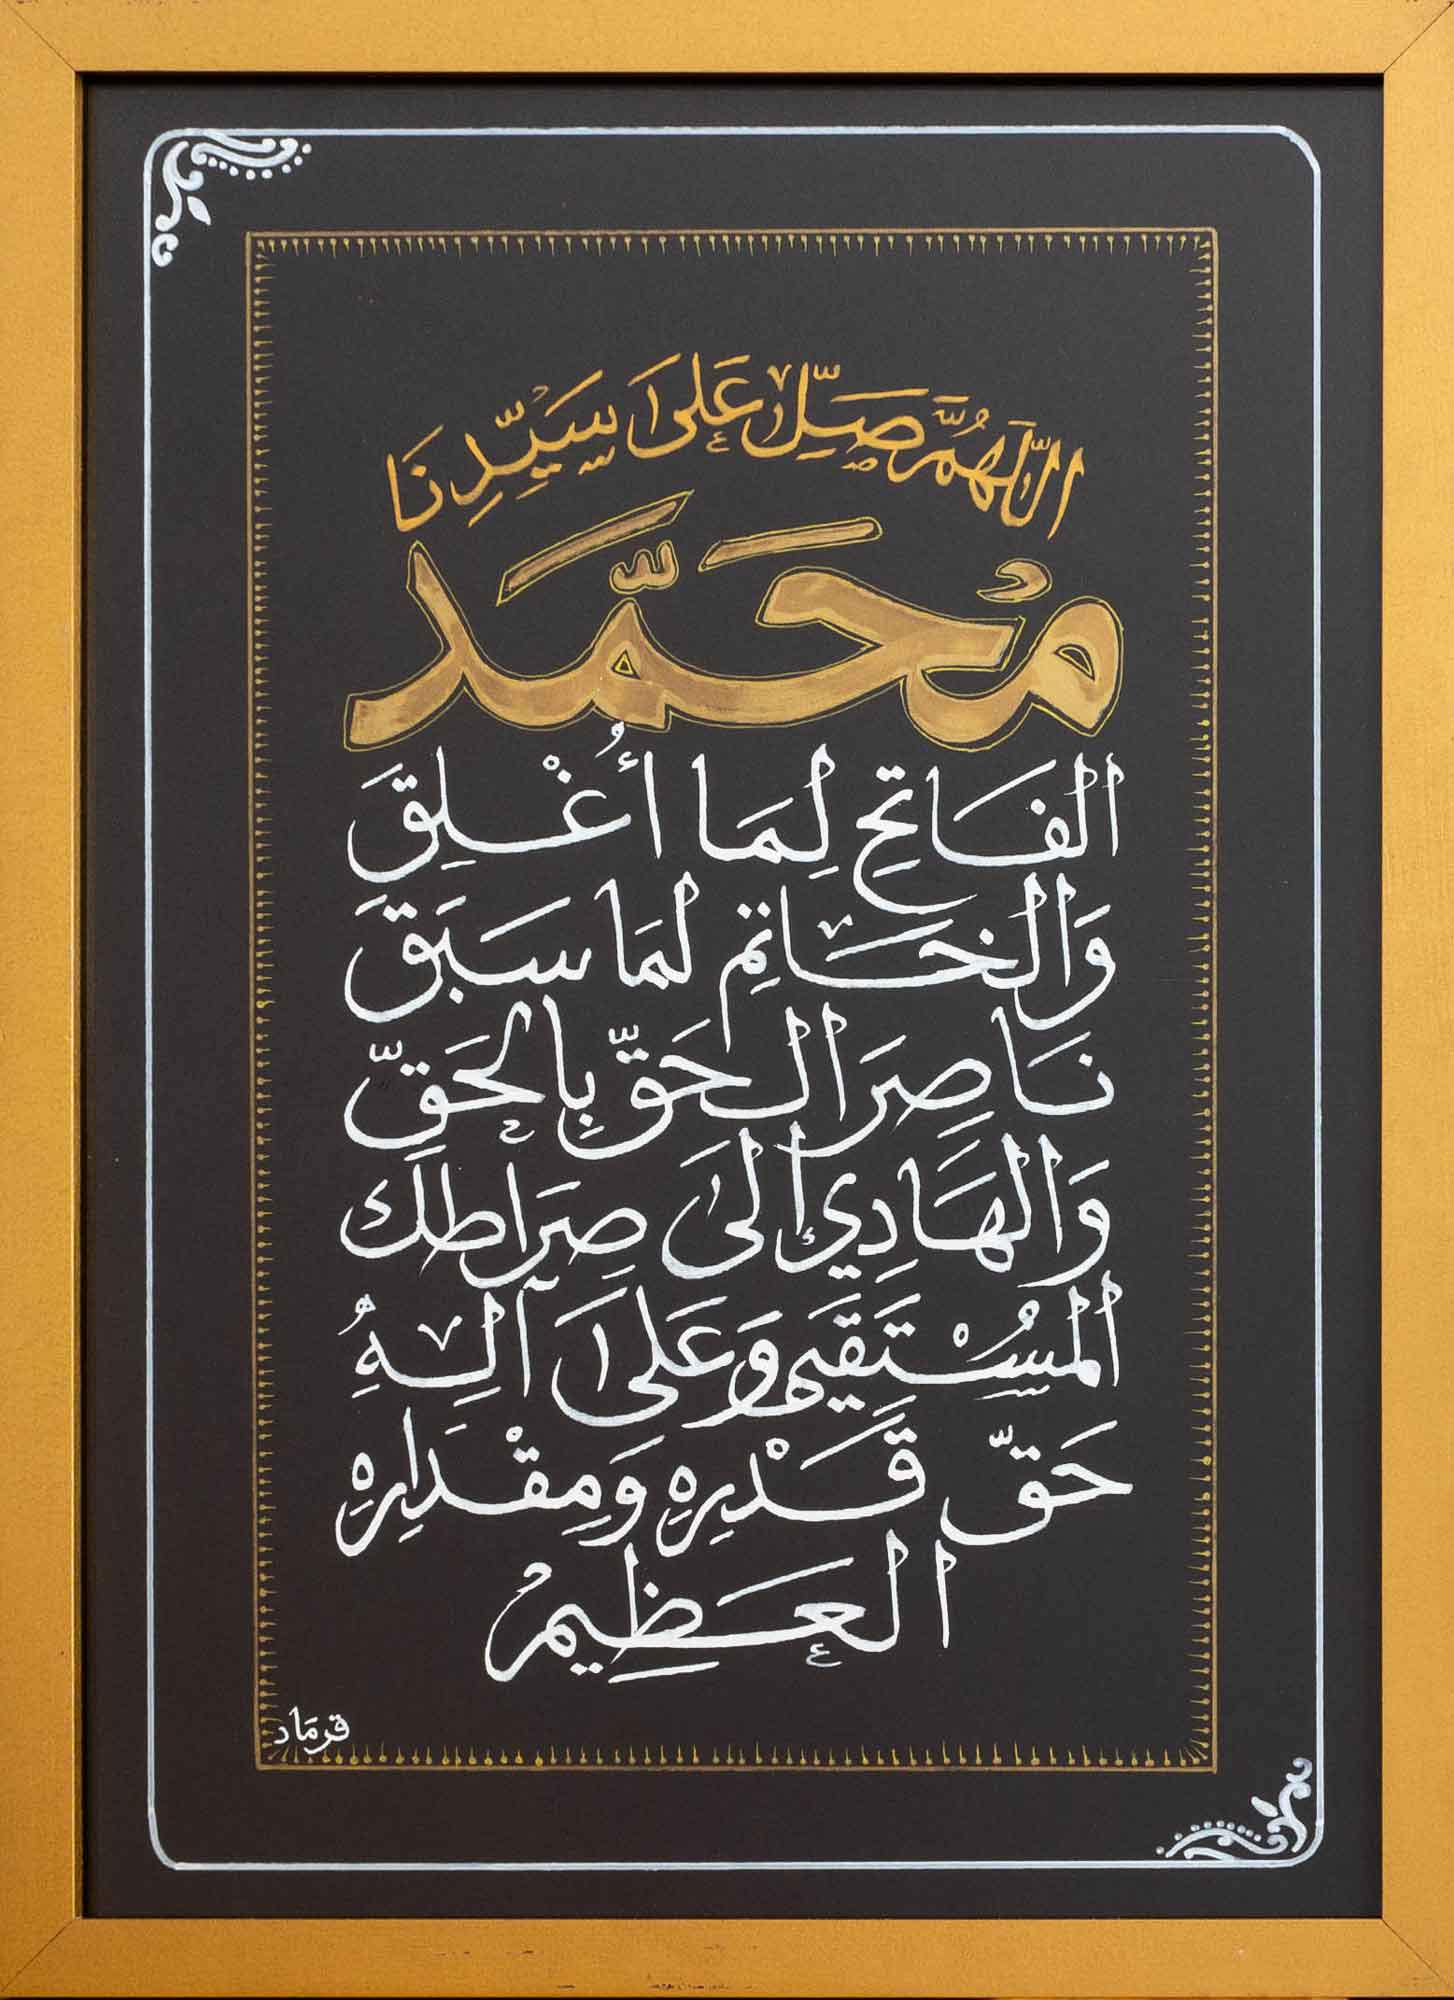 اللَّهُمَّ صَلِّ عَلَى سَيِّدِنَا
مُحَمَّدٍ
الفَاتِحِ لِمَا أُغْلِقَ
وَالخَاتِمِ لِمَا سَبَقَ
نَاصِرِ الحَقِّ بِالحَقِّ
وَالهَادِي إِلَى صِرَاطِكَ
المُسْتَقِيمِ وَعَلَى آلِهِ
حَقَّ قَدْرِهِ وَمِقْدَارِهِ
العَظِيمِ
قرمَاد